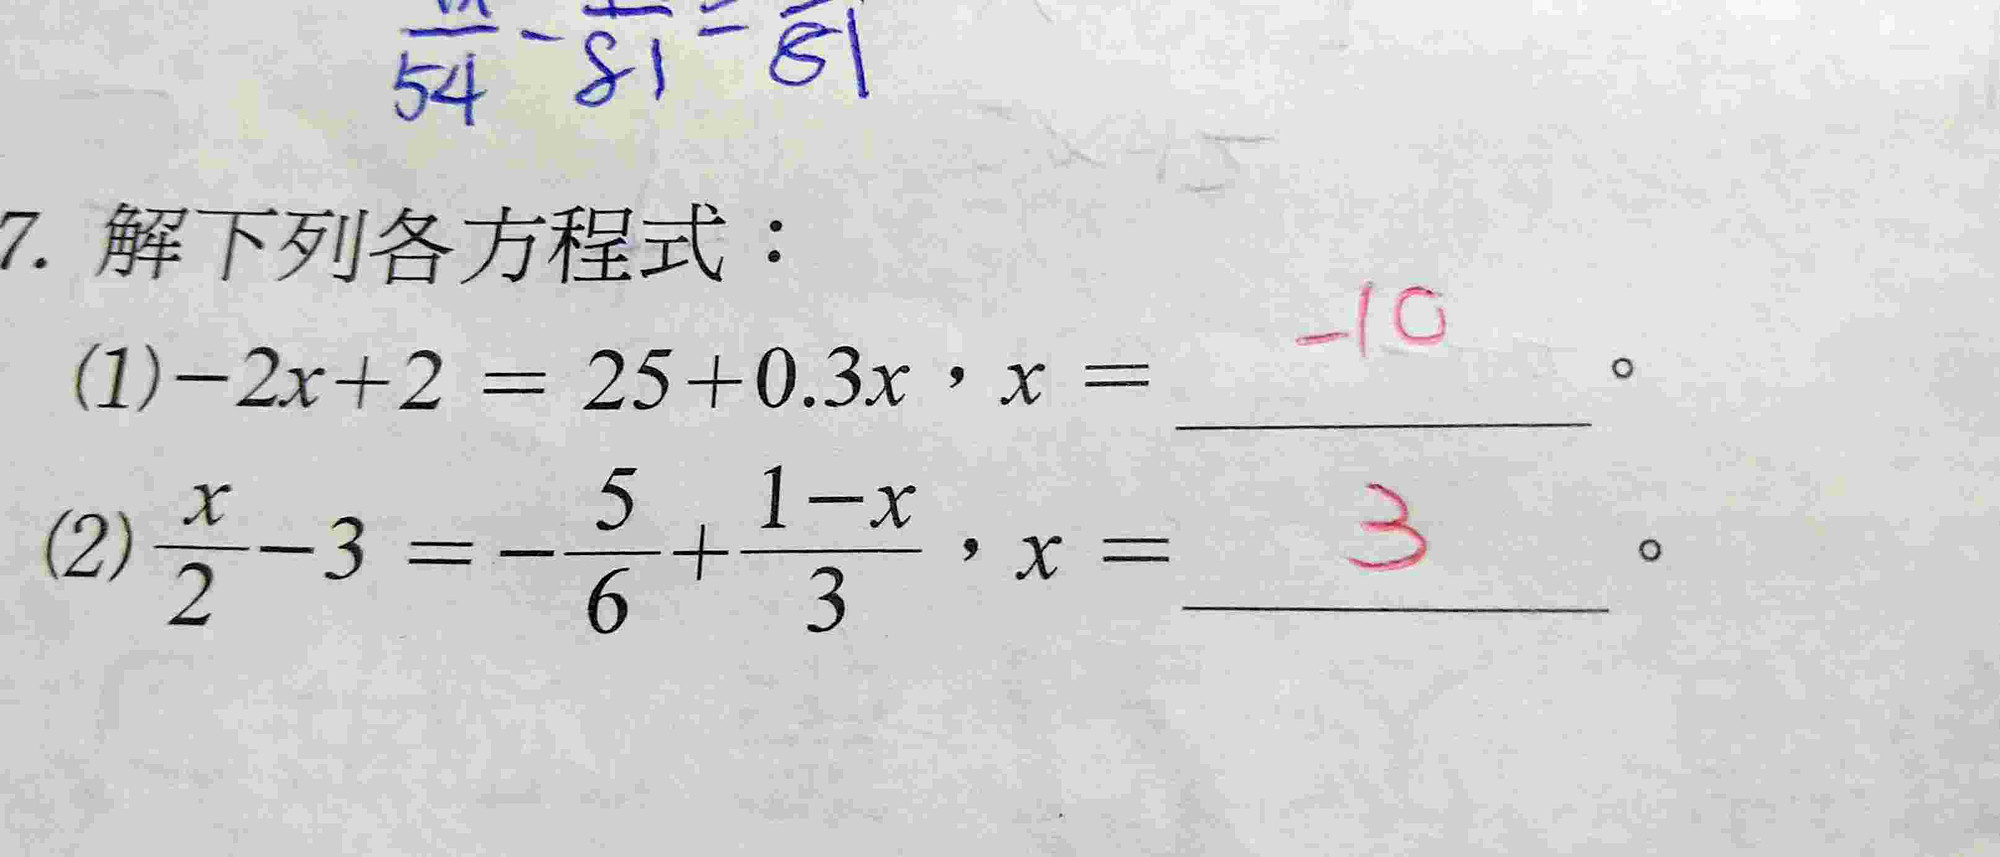 54 - 81 = 81
7. 解下列各方程式：
(1) -2x+2 = 25+0.3x，x = -10。
(2) x/2 - 3 = -5/6 + (1-x)/3，x = 3。